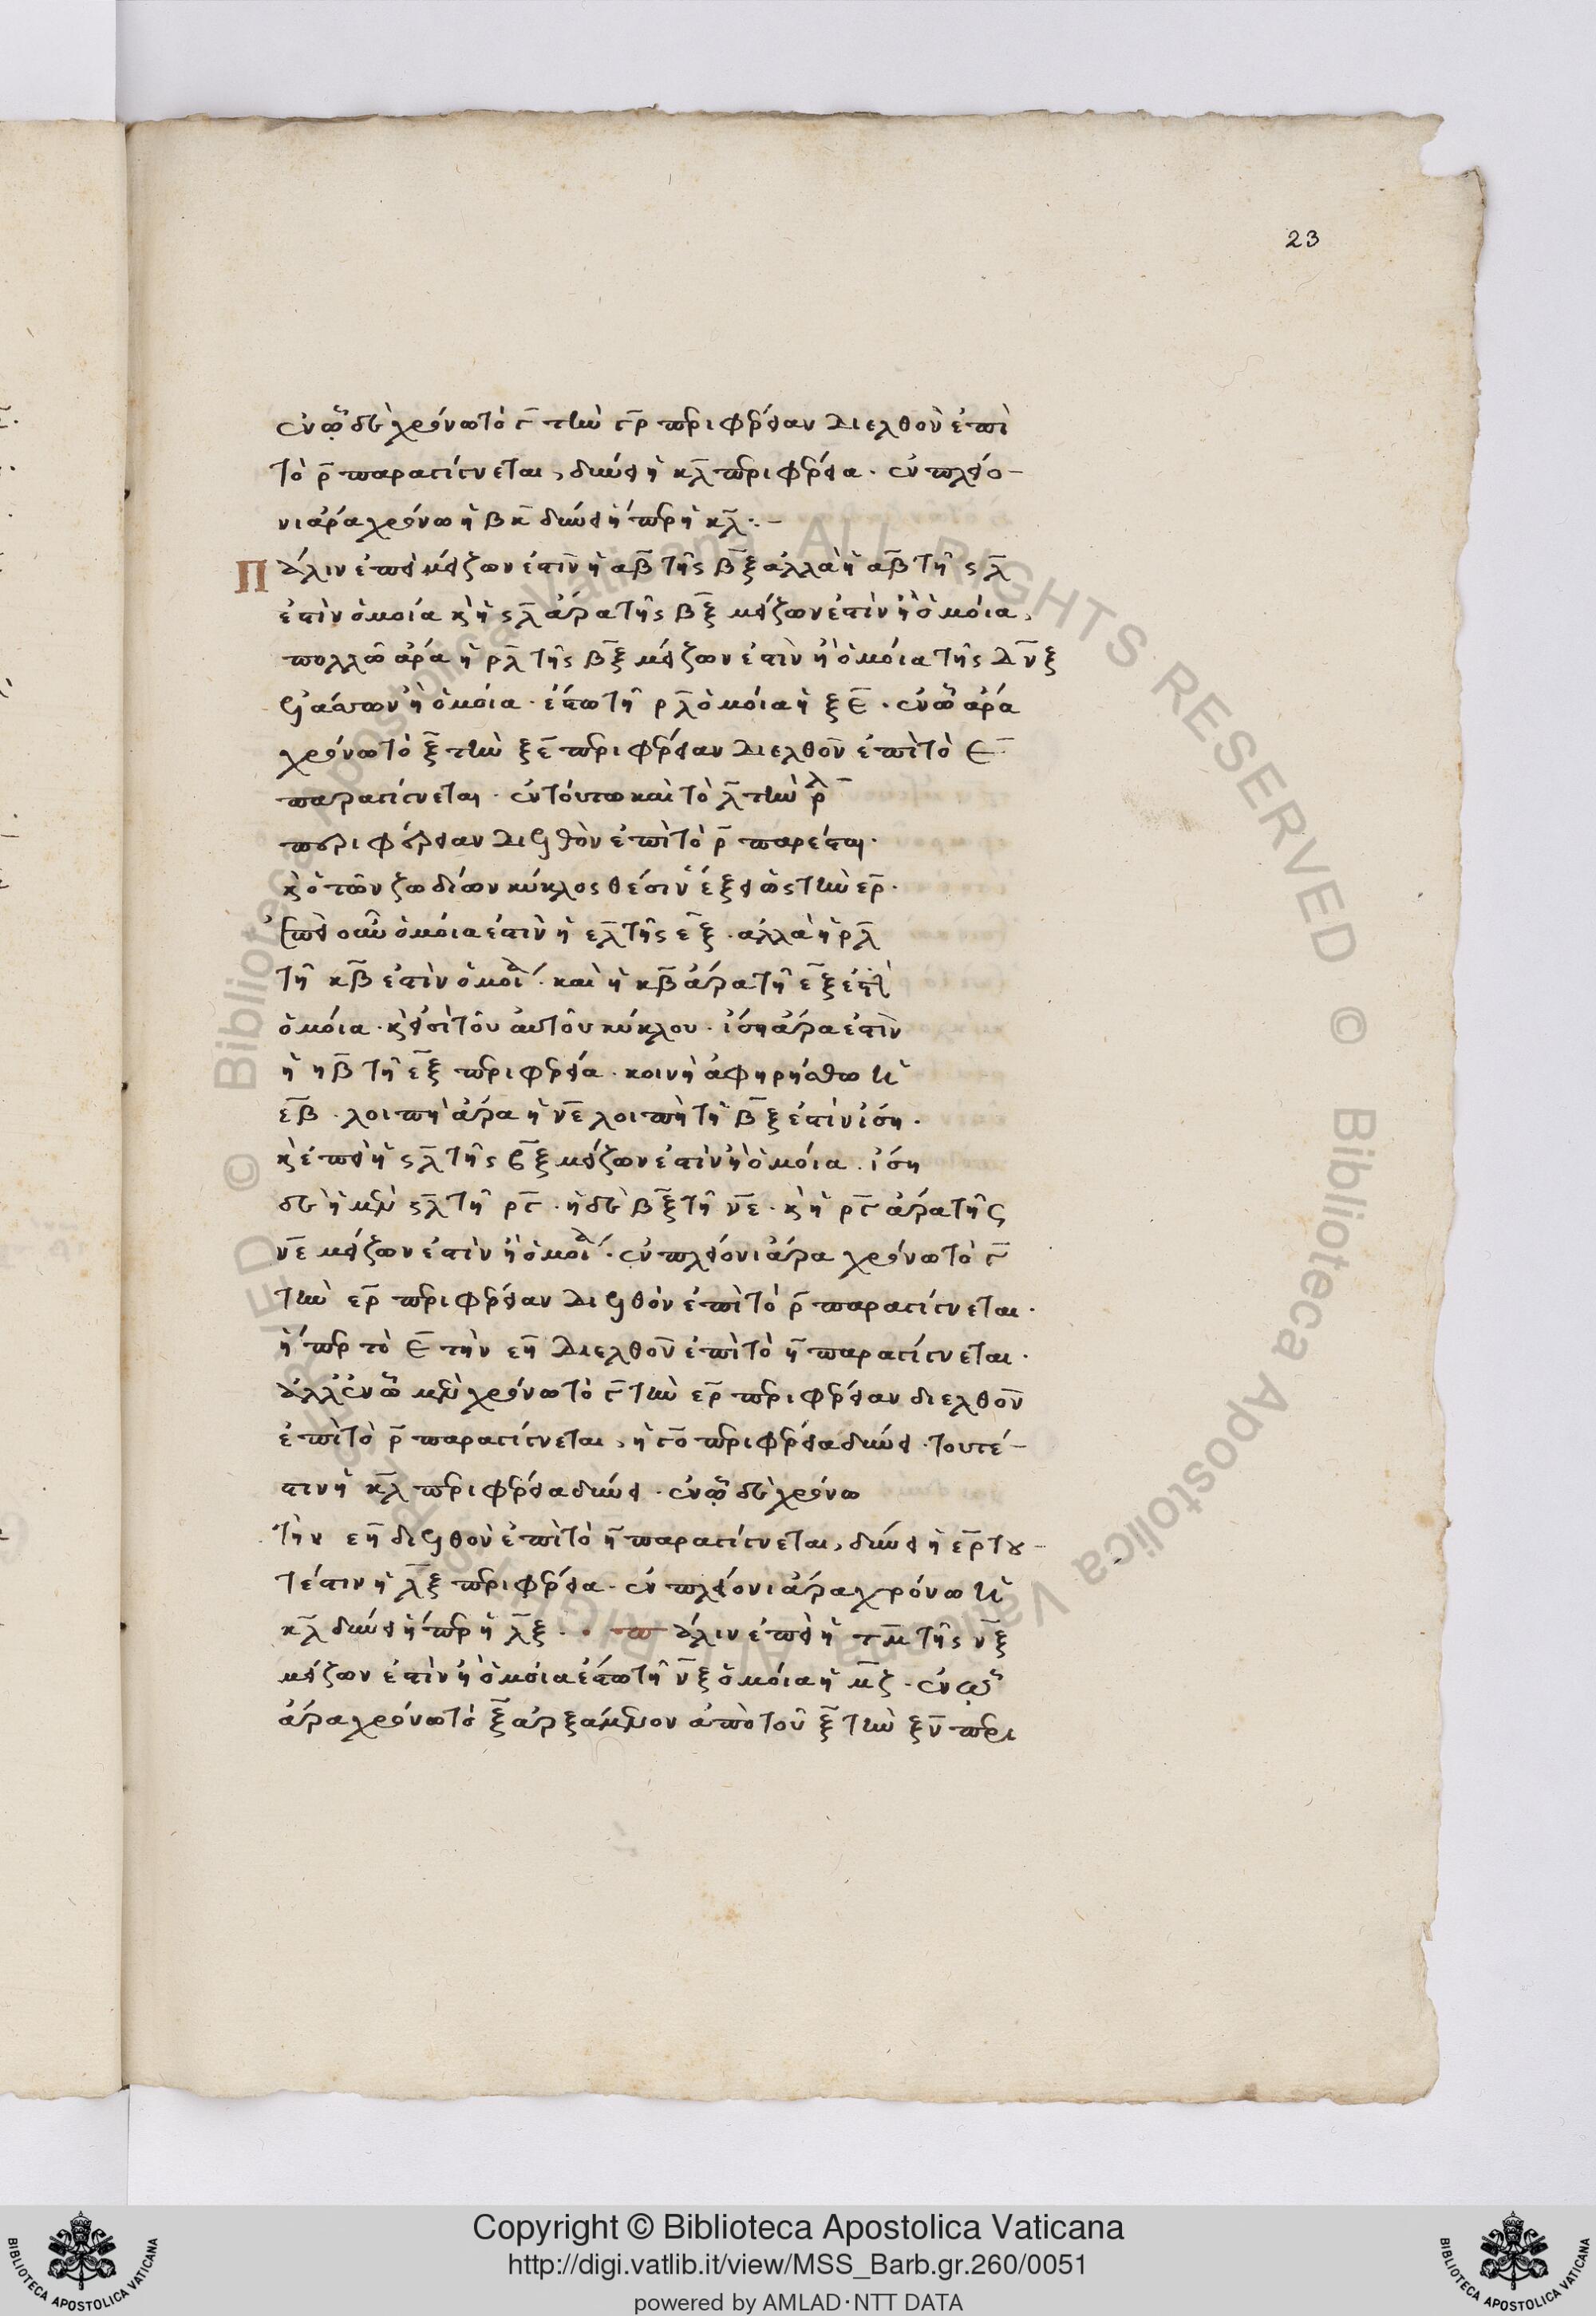 23
ἐν ᾧ δὲ χρόνω τὸ γ̅ τὴν γ̅ρ περιφέρειαν διελθὸν ἐπὶ
τὸ ρ̅ παραγίγνεται, δύνει ἡ κ̅λ περιφέρεια. ἐν πλείο-
νι ἄρα χρόνω ἡ βκ̅ δύνει ἤπερ ἡ κ̅λ:-
Πάλιν ἐπεὶ μείζων ἐστὶν ἡ αβ̅ τῆς β̅ξ ἀλλὰ ἡ αβ̅ τῆ ςλ̅
ἐστὶν ὁμοία κὴ ςλ̅ ἄρα τῆς β̅ξ μείζων ἐστὶν ἢ ὁμοία,
πολλῶ ἄρα ἡ ρλ̅ τῆς β̅ξ μείζων ἐστὶν ἢ ὁμοία τῆς
ἢ ὁμοία. ἔστω τῆ ρλ̅ ὁμοία ἡ ξε̅. ἐν ᾧ ἄρα
χρόνω τὸ ξ̅ τὴν ξε̅ περιφέρειαν διελθὸν ἐπὶ τὸ ε̅
παραγίγνεται. ἐν τούτω καὶ τὸ λ̅ τὴν λρ̅
περιφέρειαν διελθὸν ἐπὶ τὸ ρ̅ παρέσται.
κ ὁ τῶν ζωδίων κύκλος θέσιν ἕξει ὡς τὴν ερ̅.
ἐπεὶ οὖν ὁμοία ἐστὶν ἡ ελ̅ τῆς ε̅ξ. ἀλλὰ ἡ ρλ̅
τῆ κβ̅ ἐστὶν ὁμοία. καὶ ἡ κβ̅ ἄρα τῆ ε̅ξ ἐστὶν
ὁμοία. κ εἰσὶ τοῦ αὐτοῦ κύκλου. ἴση ἄρα ἐστὶν
ἡ ηβ̅ τῆ ε̅ξ περιφερεία. κοινὴ ἀφηρήσθω ἡ
ε̅β. λοιπὴ ἄρα ἡ νε̅ λοιπὴ τῆ β̅ξ ἐστὶν ἴση.
κ ἐπεὶ ἡ ςλ̅ τῆς β̅ξ μείζων ἐστὶν ἢ ὁμοία. ἴση
δὲ ἡ μὲν ςλ̅ τῆ ργ̅. ἡ δὲ β̅ξ τῆ νε̅. κ ἡ ργ̅ ἄρα τῆς
νε̅ μείζων ἐστὶν ἢ ὁμοία. ἐν πλείονι ἄρα χρόνω τὸ γ̅
τὴν ερ̅ περιφέρειαν διελθὸν ἐπὶ τὸ ρ̅ παραγίγνεται.
ἤπερ τὸ ε̅ τὴν εη̅ διελθὸν ἐπὶ τὸ η̅ παραγίγνεται.
ἀλλ' ἐν ᾧ μὲν χρόνω τὸ γ̅ τὴν ερ̅ περιφέρειαν διελθὸν
ἐπὶ τὸ ρ̅ παραγίγνεται, ἡ γο̅ περιφέρεια δύνει. τουτέ-
στιν ἡ κ̅λ περιφέρεια δύνει. ἐν ᾧ δὲ χρόνω
τὴν εη̅ διελθὸν ἐπὶ τὸ η̅ παραγίγνεται, δύνει ἡ ερ̅ του-
τέστιν ἡ λ̅ξ περιφέρεια. ἐν πλείονι ἄρα χρόνω ἡ
κ̅λ δύνει ἤπερ ἡ λ̅ξ. πάλιν ἐπεὶ ἡ τμ̅ τῆς ν̅ξ
μείζων ἐστὶν ἢ ὁμοία ἔστω τῆ ν̅ξ ὁμοία ἡ μ̅ζ. ἐν ᾧ
ἄρα χρόνω τὸ ξ̅ ἀρξάμενον ἀπὸ τοῦ ξ̅ τὴν ξν̅ περι
Copyright © Biblioteca Apostolica Vaticana
http://digi.vatlib.it/view/MSS_Barb.gr.260/0051
powered by AMLAD·NTT DATA